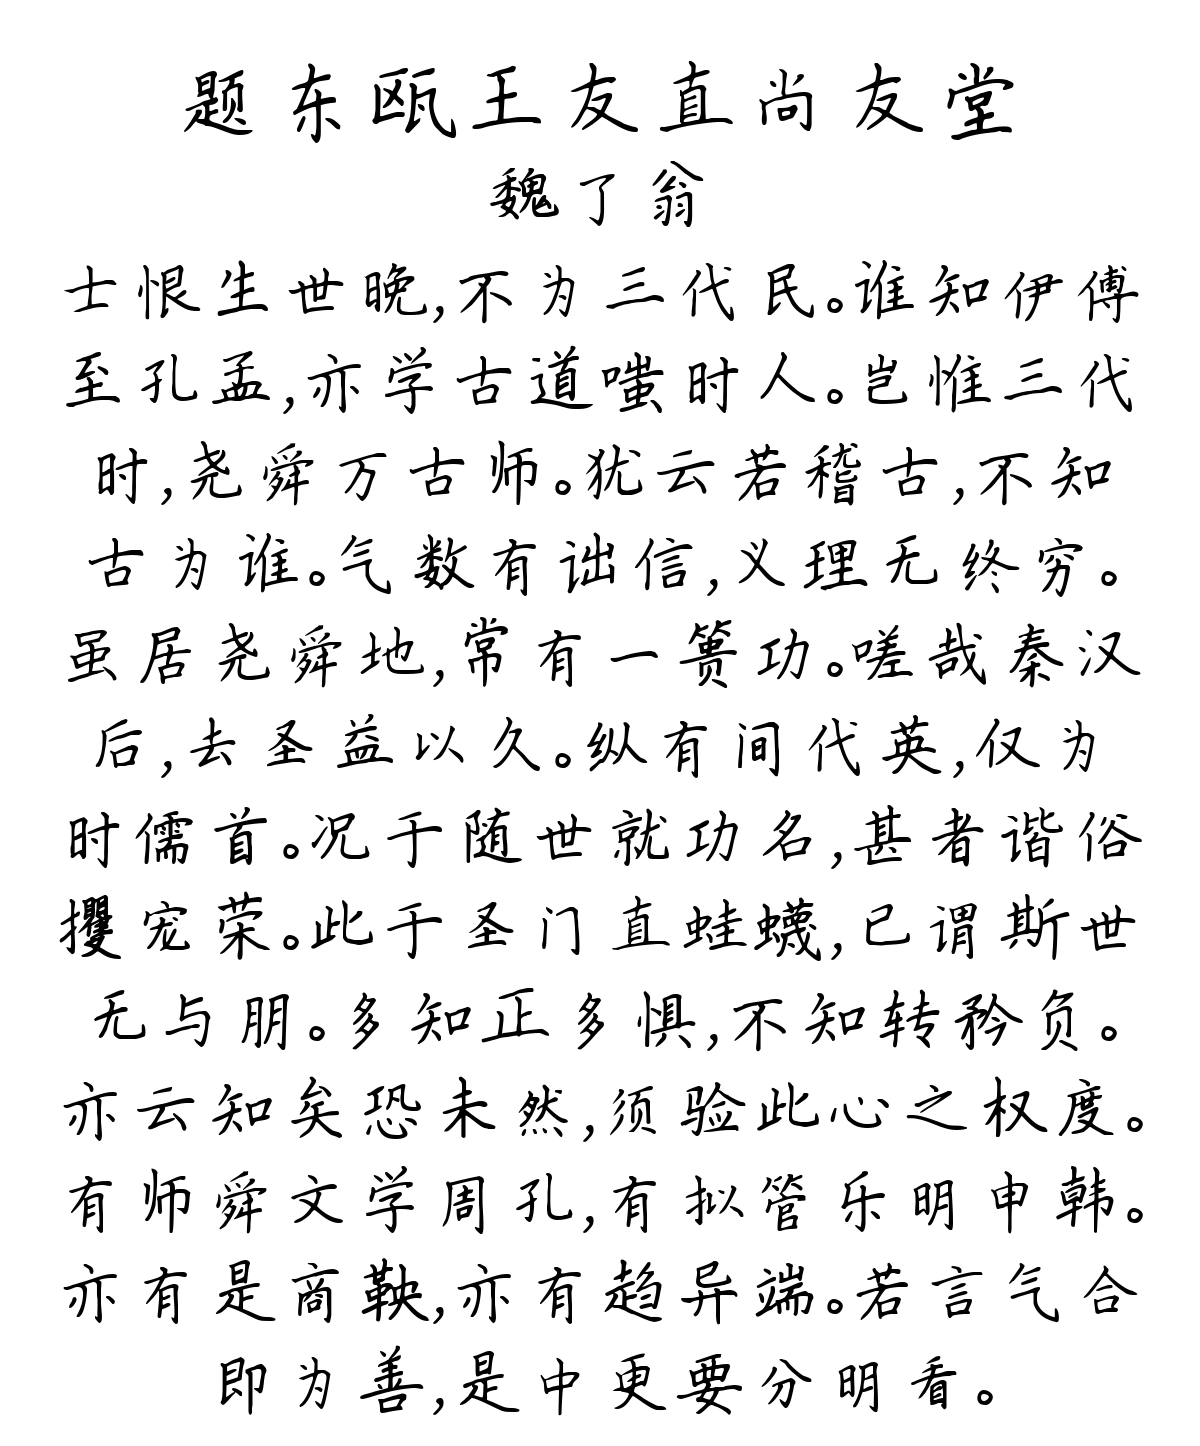 题东瓯王友直尚友堂
魏了翁
士恨生世晚,不为三代民。谁知伊傅
至孔孟,亦学古道嗤时人。岂惟三代
时,尧舜万古师。犹云若稽古,不知
古为谁。气数有诎信,义理无终穷。
虽居尧舜地,常有一篑功。嗟哉秦汉
后,去圣益以久。纵有间代英,仅为
时儒首。况于随世就功名,甚者谐俗
攫宠荣。此于圣门直蛙蠛,已谓斯世
无与朋。多知正多惧,不知转矜负。
亦云知矣恐未然,须验此心之权度。
有师舜文学周孔,有拟管乐明申韩。
亦有是商鞅,亦有趋异端。若言气合
即为善,是中更要分明看。